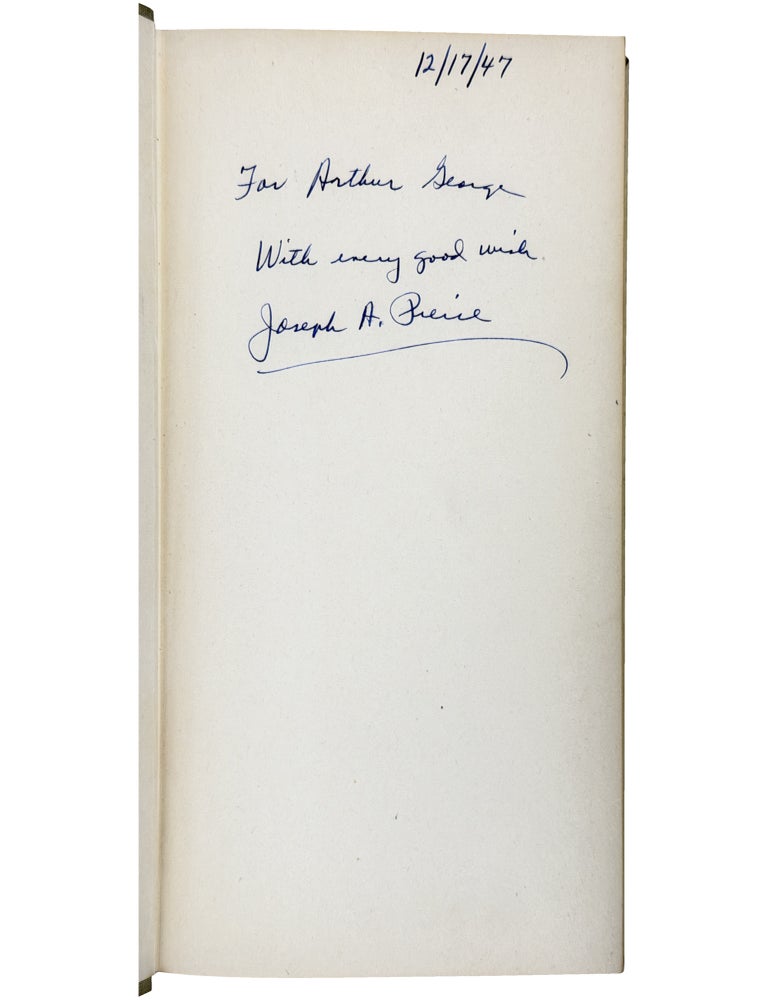 12/17/47
For Arthur George
With every good wish
Joseph A. Pierce